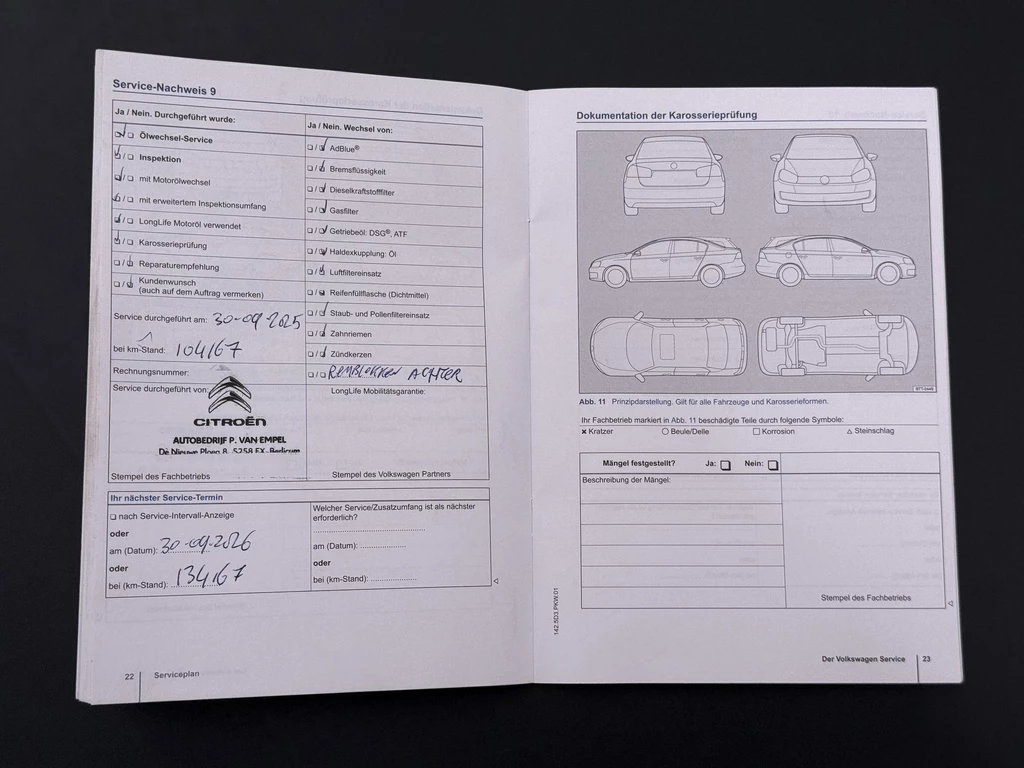 Service-Nachweis 9
Ja / Nein. Durchgeführt wurde:
☑/☐ Ölwechsel-Service
☑/☐ Inspektion
☑/☐ mit Motorölwechsel
☑/☐ mit erweitertem Inspektionsumfang
☑/☐ LongLife Motoröl verwendet
☑/☐ Karosserieprüfung
☐/☑ Reparaturempfehlung
☐/☑ Kundenwunsch
(auch auf dem Auftrag vermerken)
Service durchgeführt am: 30-09-2025
bei km-Stand: 104167
Rechnungsnummer:
Service durchgeführt von:
CITROËN
AUTOBEDRIJF P. VAN EMPEL
5258 EX
Stempel des Fachbetriebs
Ja / Nein. Wechsel von:
☐/☑ AdBlue®
☐/☑ Bremsflüssigkeit
☐/☑ Dieselkraftstofffilter
☐/☑ Gasfilter
☐/☑ Getriebeöl: DSG®, ATF
☐/☑ Haldexkupplung: Öl
☐/☑ Luftfiltereinsatz
☐/☑ Reifenfüllflasche (Dichtmittel)
☐/☑ Staub- und Pollenfiltereinsatz
☐/☑ Zahnriemen
☐/☑ Zündkerzen
☑/☐ REMBLOKKEN ACHTER
LongLife Mobilitätsgarantie:
Stempel des Volkswagen Partners
Ihr nächster Service-Termin
☐ nach Service-Intervall-Anzeige
oder
am (Datum): 30-09-2026
oder
bei (km-Stand): 134167
Welcher Service/Zusatzumfang ist als nächster
erforderlich?
am (Datum):
oder
bei (km-Stand):
22 Serviceplan
Dokumentation der Karosserieprüfung
B7T-0449
Abb. 11 Prinzipdarstellung. Gilt für alle Fahrzeuge und Karosserieformen.
Ihr Fachbetrieb markiert in Abb. 11 beschädigte Teile durch folgende Symbole:
✖ Kratzer ○ Beule/Delle ☐ Korrosion △ Steinschlag
Mängel festgestellt? Ja: ☐ Nein: ☐
Beschreibung der Mängel:
Stempel des Fachbetriebs
142.5D3.PKW.01
Der Volkswagen Service 23